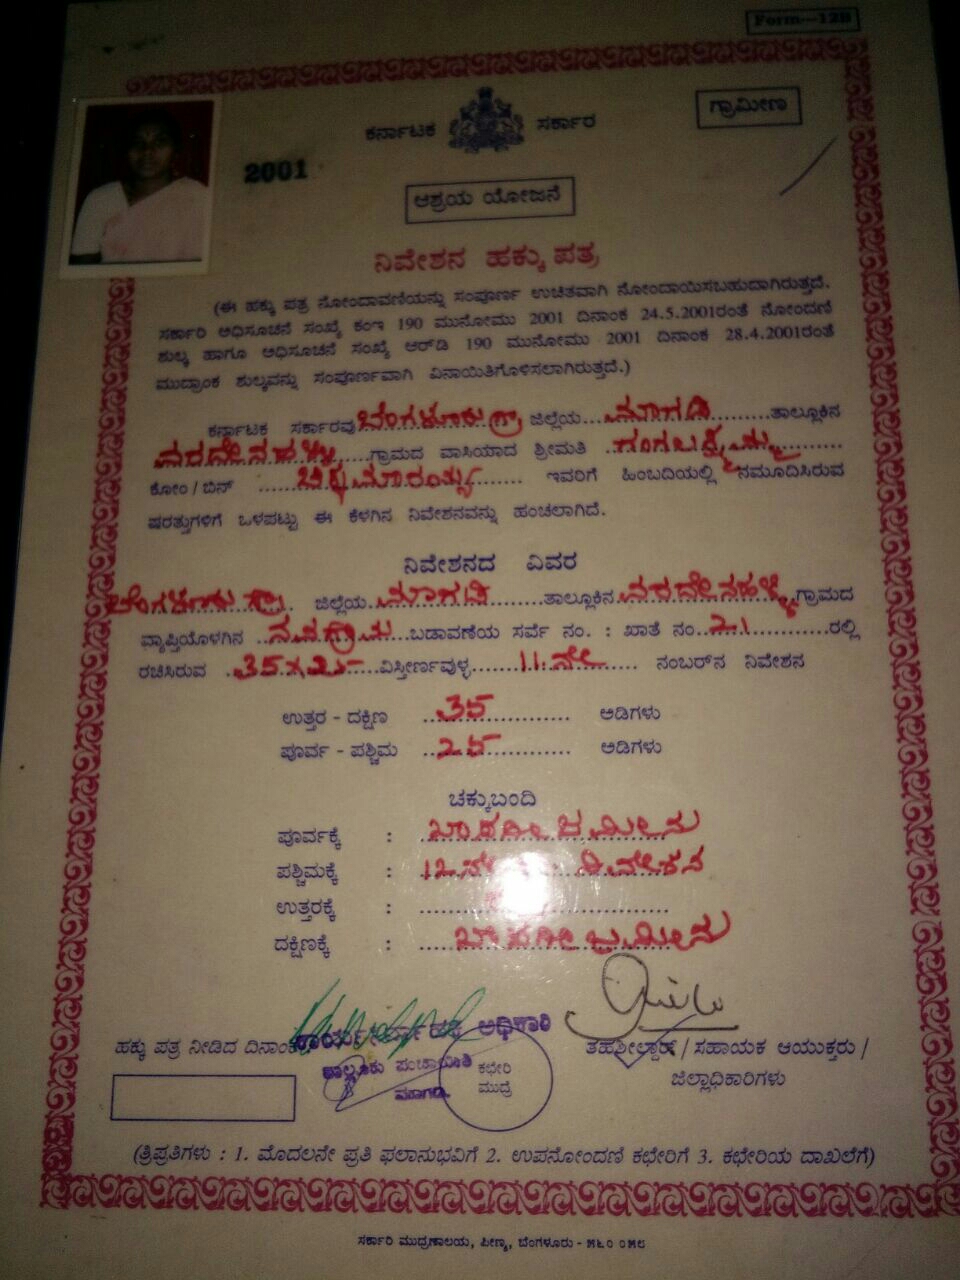 Form—12B
ಗ್ರಾಮೀಣ
ಕರ್ನಾಟಕ ಸರ್ಕಾರ
2001
ಆಶ್ರಯ ಯೋಜನೆ
ನಿವೇಶನ ಹಕ್ಕು ಪತ್ರ
(ಈ ಹಕ್ಕು ಪತ್ರ ನೋಂದಾವಣಿಯನ್ನು ಸಂಪೂರ್ಣ ಉಚಿತವಾಗಿ ನೋಂದಾಯಿಸಬಹುದಾಗಿರುತ್ತದೆ.
ಸರ್ಕಾರಿ ಅಧಿಸೂಚನೆ ಸಂಖ್ಯೆ ಕಂಇ 190 ಮುನೋಮು 2001 ದಿನಾಂಕ 24.5.2001ರಂತೆ ನೋಂದಣಿ
ಶುಲ್ಕ ಹಾಗೂ ಅಧಿಸೂಚನೆ ಸಂಖ್ಯೆ ಆರ್‌ಡಿ 190 ಮುನೋಮು 2001 ದಿನಾಂಕ 28.4.2001ರಂತೆ
ಮುದ್ರಾಂಕ ಶುಲ್ಕವನ್ನು ಸಂಪೂರ್ಣವಾಗಿ ವಿನಾಯಿತಿಗೊಳಿಸಲಾಗಿರುತ್ತದೆ.)
ಕರ್ನಾಟಕ ಸರ್ಕಾರವು ಬೆಂಗಳೂರು ಗ್ರಾ ಜಿಲ್ಲೆಯ ಮಾಗಡಿ ತಾಲ್ಲೂಕಿನ
ವರದೇನಹಳ್ಳಿ ಗ್ರಾಮದ ವಾಸಿಯಾದ ಶ್ರೀಮತಿ ಗಂಗಲಕ್ಷ್ಮಮ್ಮ
ಕೋಂ / ಬಿನ್ ಇವರಿಗೆ ಹಿಂಬದಿಯಲ್ಲಿ ನಮೂದಿಸಿರುವ
ಷರತ್ತುಗಳಿಗೆ ಒಳಪಟ್ಟು ಈ ಕೆಳಗಿನ ನಿವೇಶನವನ್ನು ಹಂಚಲಾಗಿದೆ.
ನಿವೇಶನದ ವಿವರ
ಬೆಂಗಳೂರು ಗ್ರಾ. ಜಿಲ್ಲೆಯ ಮಾಗಡಿ ತಾಲ್ಲೂಕಿನ ವರದೇನಹಳ್ಳಿ ಗ್ರಾಮದ
ವ್ಯಾಪ್ತಿಯೊಳಗಿನ ನವಗ್ರಾಮ ಬಡಾವಣೆಯ ಸರ್ವೆ ನಂ. : ಖಾತೆ ನಂ. 21 ರಲ್ಲಿ
ರಚಿಸಿರುವ 35x25 ವಿಸ್ತೀರ್ಣವುಳ್ಳ 11 ನೇ ನಂಬರ್‌ನ ನಿವೇಶನ
ಉತ್ತರ - ದಕ್ಷಿಣ 35 ಅಡಿಗಳು
ಪೂರ್ವ - ಪಶ್ಚಿಮ 25 ಅಡಿಗಳು
ಚಕ್ಕುಬಂದಿ
ಪೂರ್ವಕ್ಕೆ : ಖಾಸಗೀ ಜಮೀನು
ಪಶ್ಚಿಮಕ್ಕೆ : 12 ನೇ ನಿವೇಶನ
ಉತ್ತರಕ್ಕೆ :
ದಕ್ಷಿಣಕ್ಕೆ : ಖಾಸಗೀ ಜಮೀನು
ಹಕ್ಕು ಪತ್ರ ನೀಡಿದ ದಿನಾಂಕ
ಕಾರ್ಯನಿರ್ವಾಹಕ ಅಧಿಕಾರಿ
ತಾಲ್ಲೂಕು ಪಂಚಾಯಿತಿ
ಮಾಗಡಿ.
ಕಛೇರಿ
ಮುದ್ರೆ
ತಹಶೀಲ್ದಾರ್ / ಸಹಾಯಕ ಆಯುಕ್ತರು /
ಜಿಲ್ಲಾಧಿಕಾರಿಗಳು
(ತ್ರಿಪ್ರತಿಗಳು : 1. ಮೊದಲನೇ ಪ್ರತಿ ಫಲಾನುಭವಿಗೆ 2. ಉಪನೋಂದಣಿ ಕಛೇರಿಗೆ 3. ಕಛೇರಿಯ ದಾಖಲೆಗೆ)
ಸರ್ಕಾರಿ ಮುದ್ರಣಾಲಯ, ಪೀಣ್ಯ, ಬೆಂಗಳೂರು - ೫೬೦ ೦೫೮